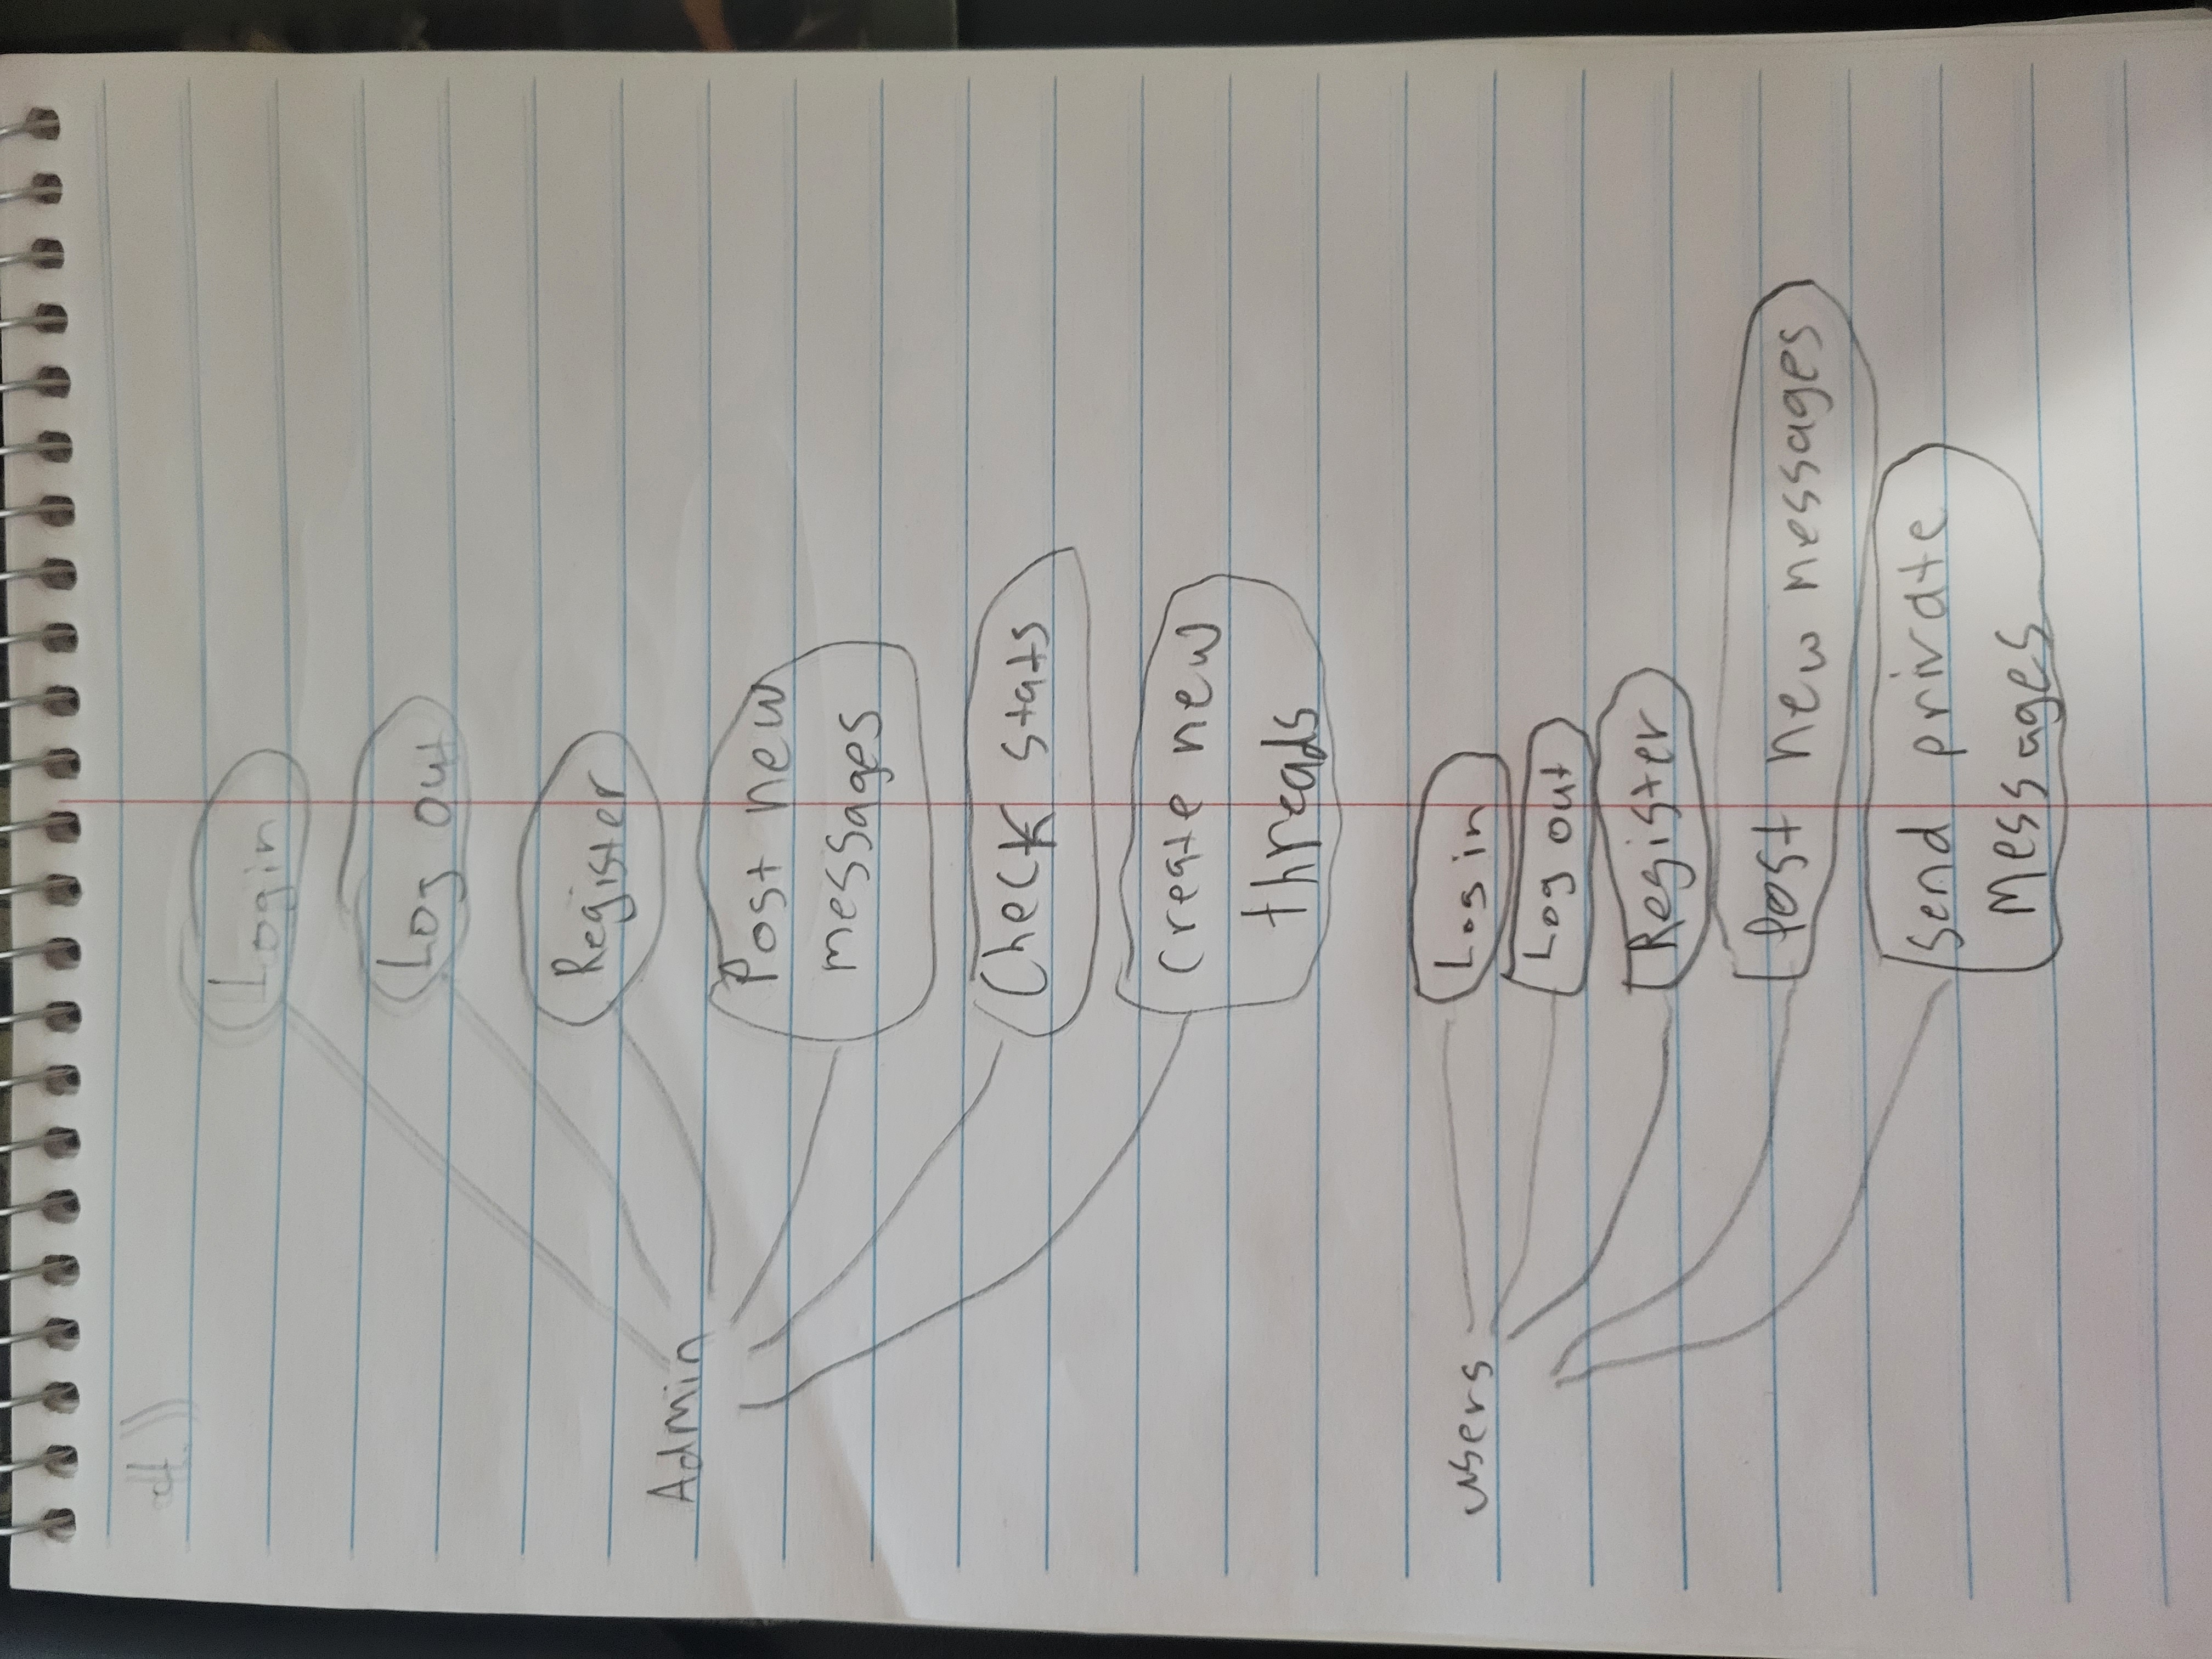 4.)
Login
Log out
Register
Admin
Post new
messages
Check stats
Create new
threads
users
Log in
Log out
Register
Post new messages
Send private
Messages